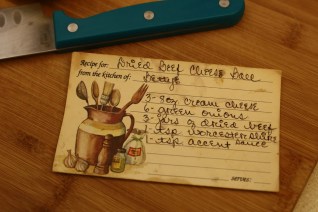 Recipe for: Dried Beef Cheese Ball
from the kitchen of:
3-8oz cream cheese
6-green onions
3-jars of dried beef
1-tsp worcestershire
sauce
1-tsp accent